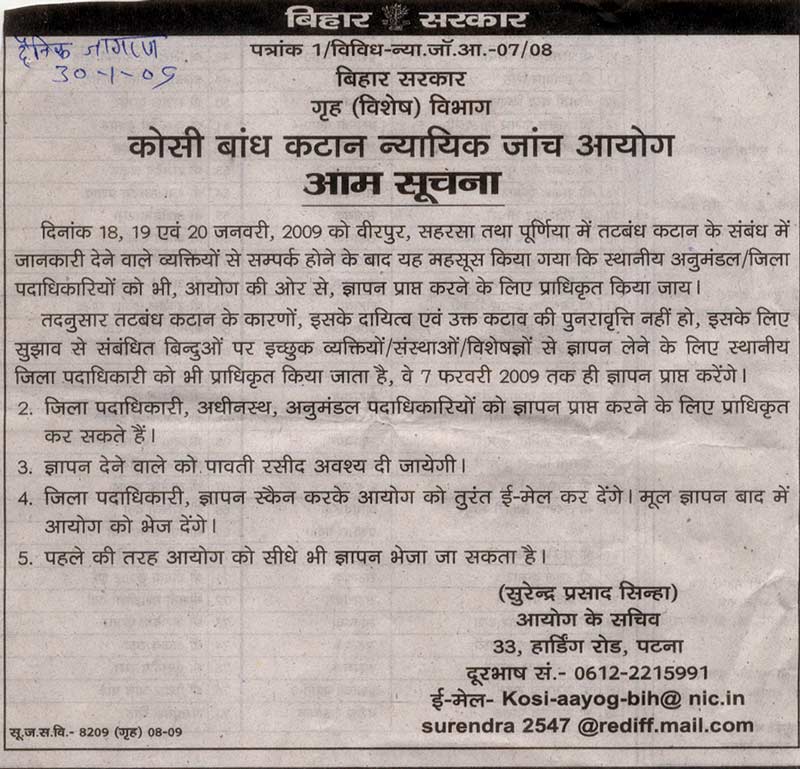 बिहार सरकार
दैनिक जागरण
30-1-09
पत्रांक 1/विविध-न्या.जॉ.आ.-07/08
बिहार सरकार
गृह (विशेष) विभाग
कोसी बांध कटान न्यायिक जांच आयोग
आम सूचना
दिनांक 18, 19 एवं 20 जनवरी, 2009 को वीरपुर, सहरसा तथा पूर्णिया में तटबंध कटान के संबंध में
जानकारी देने वाले व्यक्तियों से सम्पर्क होने के बाद यह महसूस किया गया कि स्थानीय अनुमंडल/जिला
पदाधिकारियों को भी, आयोग की ओर से, ज्ञापन प्राप्त करने के लिए प्राधिकृत किया जाय।
तदनुसार तटबंध कटान के कारणों, इसके दायित्व एवं उक्त कटाव की पुनरावृत्ति नहीं हो, इसके लिए
सुझाव से संबंधित बिन्दुओं पर इच्छुक व्यक्तियों/संस्थाओं/विशेषज्ञों से ज्ञापन लेने के लिए स्थानीय
जिला पदाधिकारी को भी प्राधिकृत किया जाता है, वे 7 फरवरी 2009 तक ही ज्ञापन प्राप्त करेंगे।
2. जिला पदाधिकारी, अधीनस्थ, अनुमंडल पदाधिकारियों को ज्ञापन प्राप्त करने के लिए प्राधिकृत
कर सकते हैं।
3. ज्ञापन देने वाले को पावती रसीद अवश्य दी जायेगी।
4. जिला पदाधिकारी, ज्ञापन स्कैन करके आयोग को तुरंत ई-मेल कर देंगे। मूल ज्ञापन बाद में
आयोग को भेज देंगे।
5. पहले की तरह आयोग को सीधे भी ज्ञापन भेजा जा सकता है।
(सुरेन्द्र प्रसाद सिन्हा)
आयोग के सचिव
33, हार्डिंग रोड, पटना
दूरभाष सं.- 0612-2215991
ई-मेल- Kosi-aayog-bih@ nic.in
surendra 2547 @rediff.mail.com
सू.ज.स.वि.- 8209 (गृह) 08-09